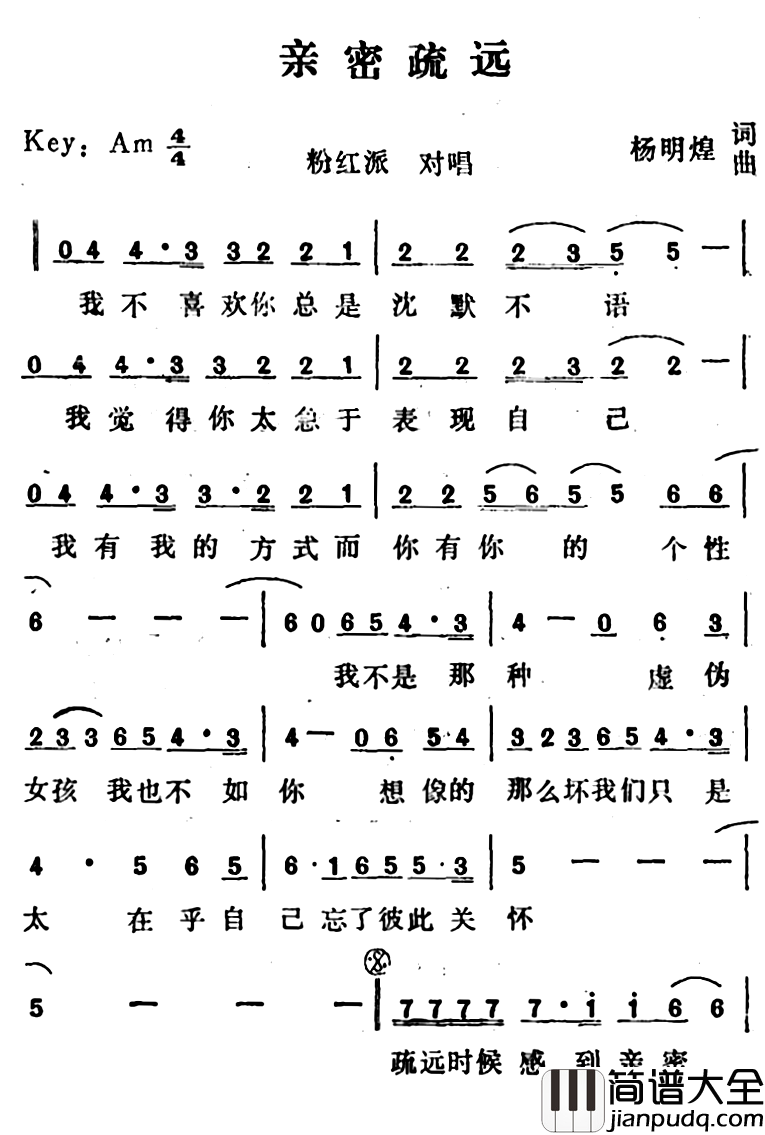 亲密疏远
Key：Am 4/4
粉红派 对唱
杨明煌 词曲
0 4 4·3 3 2 2 1 | 2 2 2 3 5 5 — |
我不喜欢你总是沈默不语
0 4 4·3 3 2 2 1 | 2 2 2 3 2 2 — |
我觉得你太急于表现自己
0 4 4·3 3·2 2 1 | 2 2 5 6 5 5 6 6 |
我有我的方式而你有你的个性
6 — — — | 6 0 6 5 4·3 | 4 — 0 6 3 |
我不是那种虚伪
2 3 3 6 5 4·3 | 4 — 0 6 5 4 | 3 2 3 6 5 4·3 |
女孩我也不如你想像的那么坏我们只是
4 · 5 6 5 | 6·1 6 5 5·3 | 5 — — — |
太在乎自己忘了彼此关怀
5 — — — | 7 7 7 7 7·i i 6 6 |
疏远时候感到亲密
简谱大全
jianpudq.com